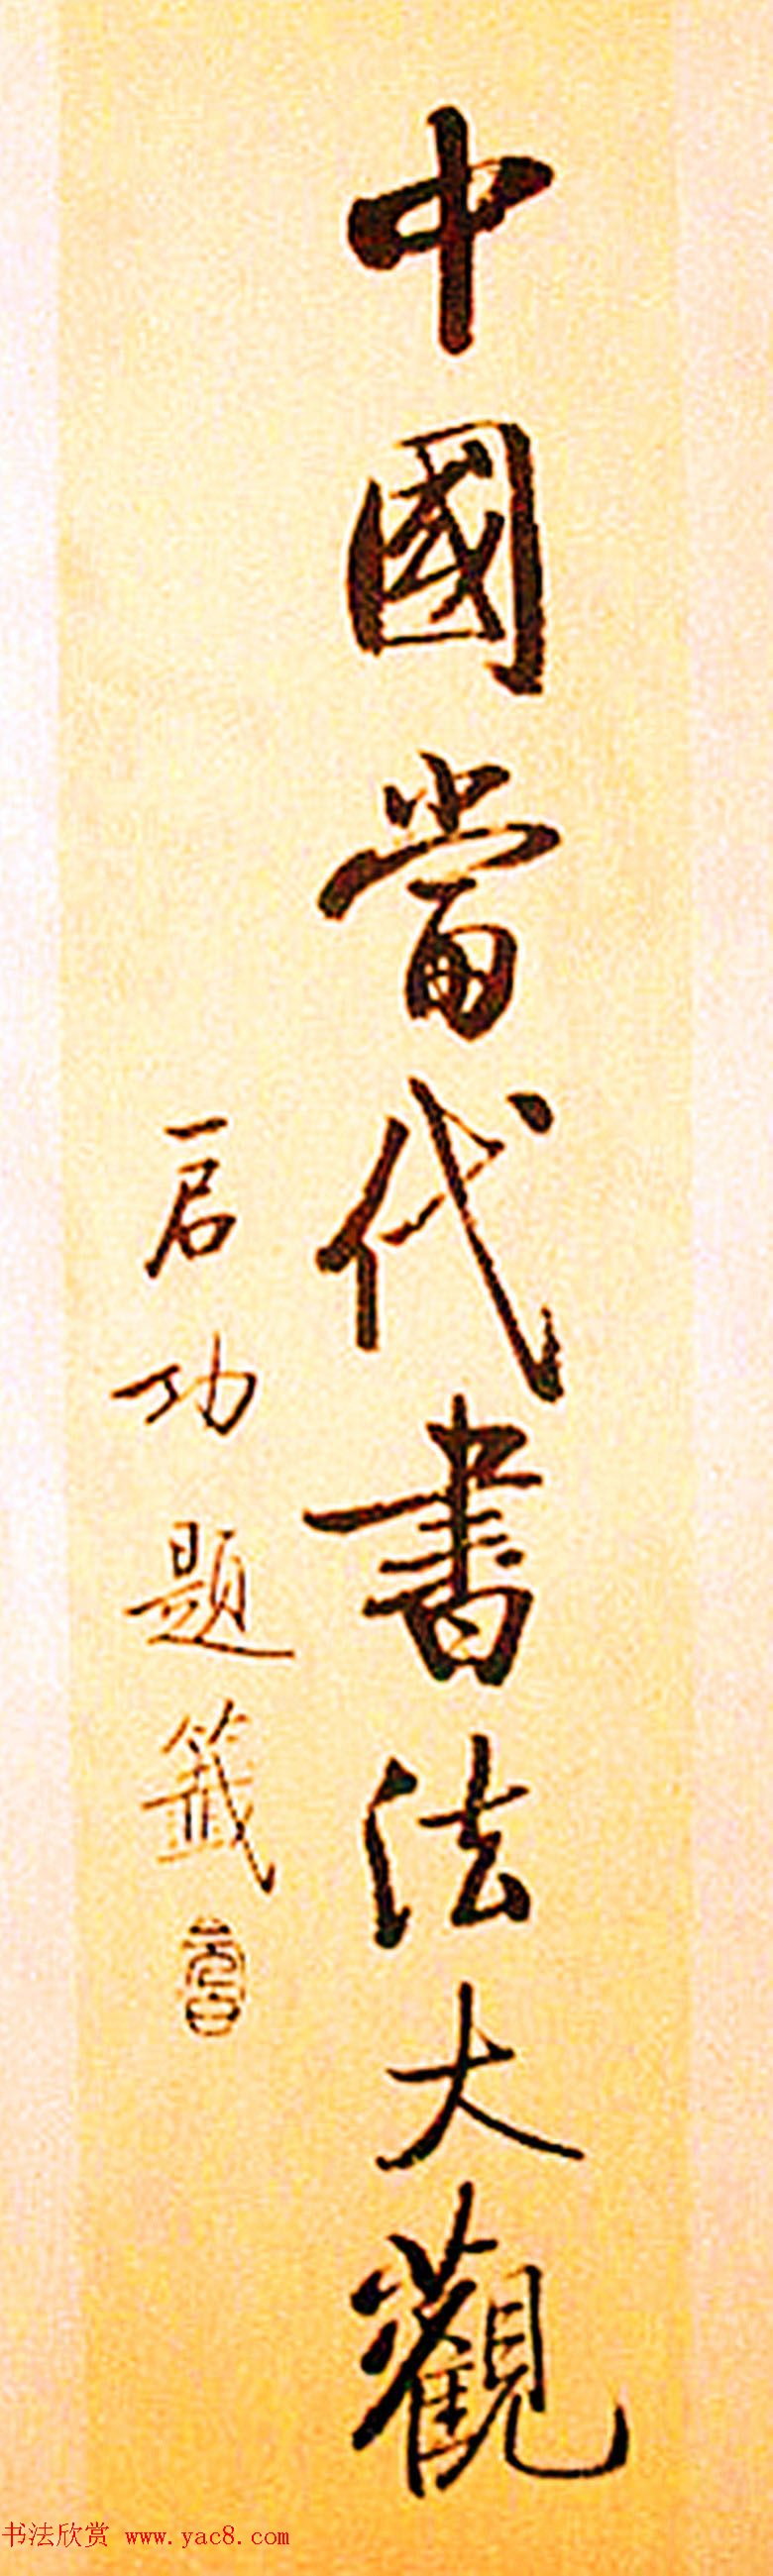 中國當代書法大觀
启功題籤
书法欣赏 www.yac8.com